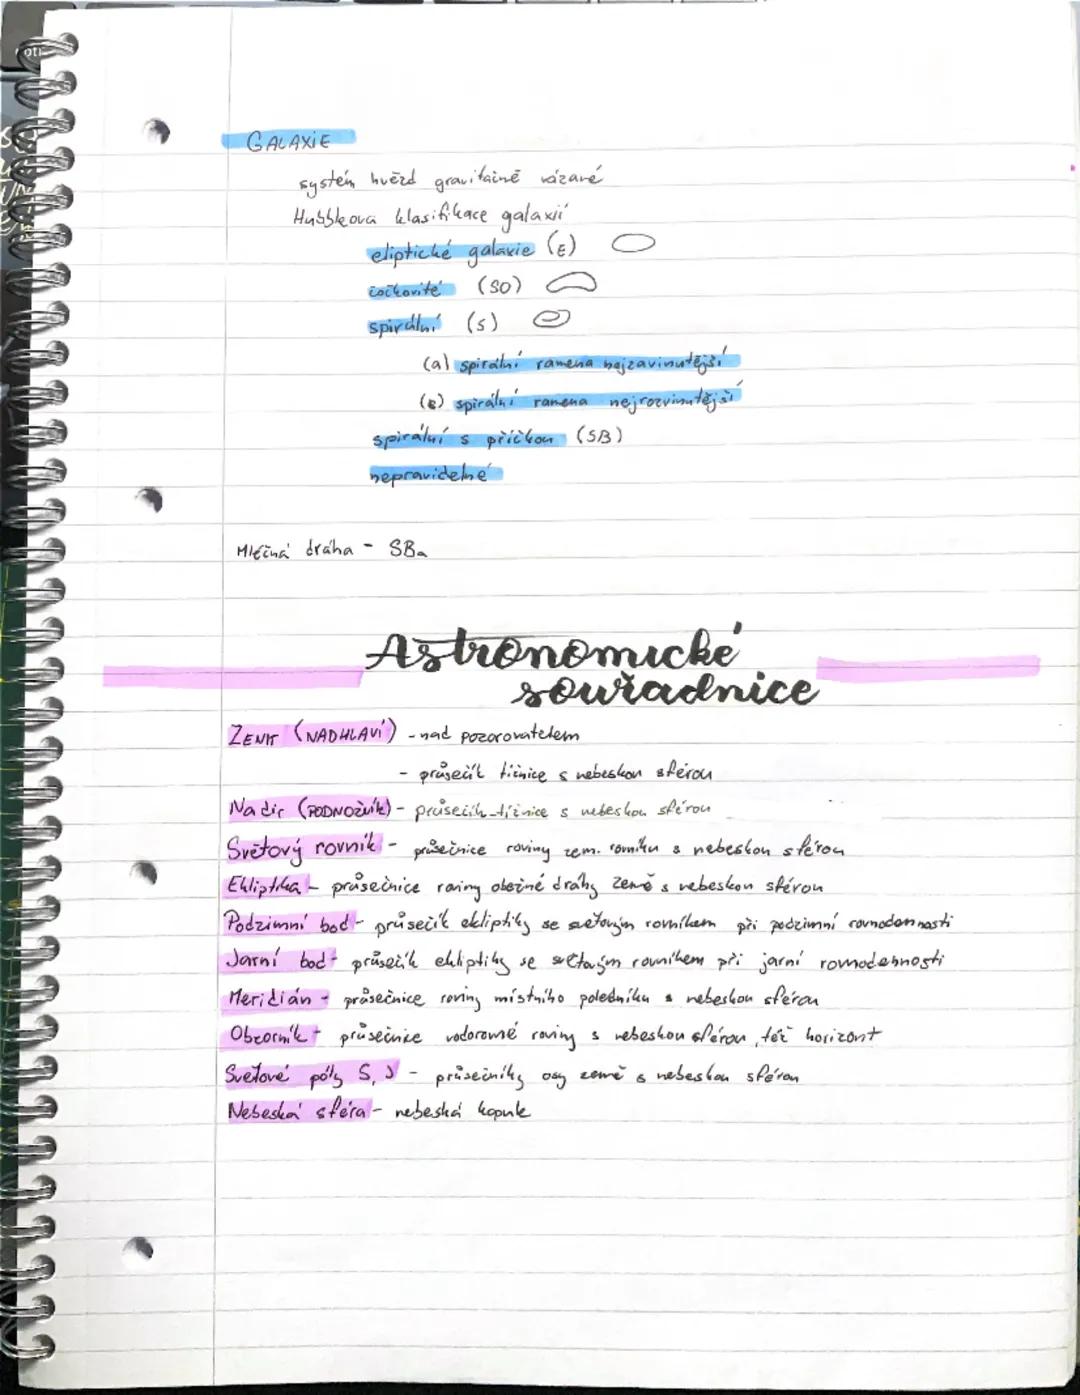 GALAXIE
systém hvězd gravitačně vázané
Hubbleova klasifikace galaxií
eliptické galaxie (E)
čočkovité (SO)
spirální (S)
(a) spirální ramena nejzavinutější
spirální ramena nejrozvinutější
spirální s příčkou (SB)
nepravidelné
Mléčná dráha - SBa
Astronomické
souřadnice
ZENIT (NADHLAVÍ) - nad pozorovatelem
- průsečík tížnice s nebeskou sférou
Nadir (PODNOŽNÍK) - průsečík tížnice s nebeskou sférou
Světový rovník - průsečnice roviny zem. rovníku s nebeskou sférou
Ekliptika - průsečnice roviny oběžné dráhy Země s nebeskou sférou
Podzimní bod - průsečík ekliptiky se světovým rovníkem při podzimní rovnodennosti
Jarní bod - průsečík ekliptiky se světovým rovníkem při jarní rovnodennosti
Meridián - průsečnice roviny místního poledníku s nebeskou sférou
Obzorník - průsečnice vodorovné roviny s nebeskou sférou, též horizont
Světové póly S, J - průsečníky osy země s nebeskou sférou
Nebeská sféra - nebeská kopule